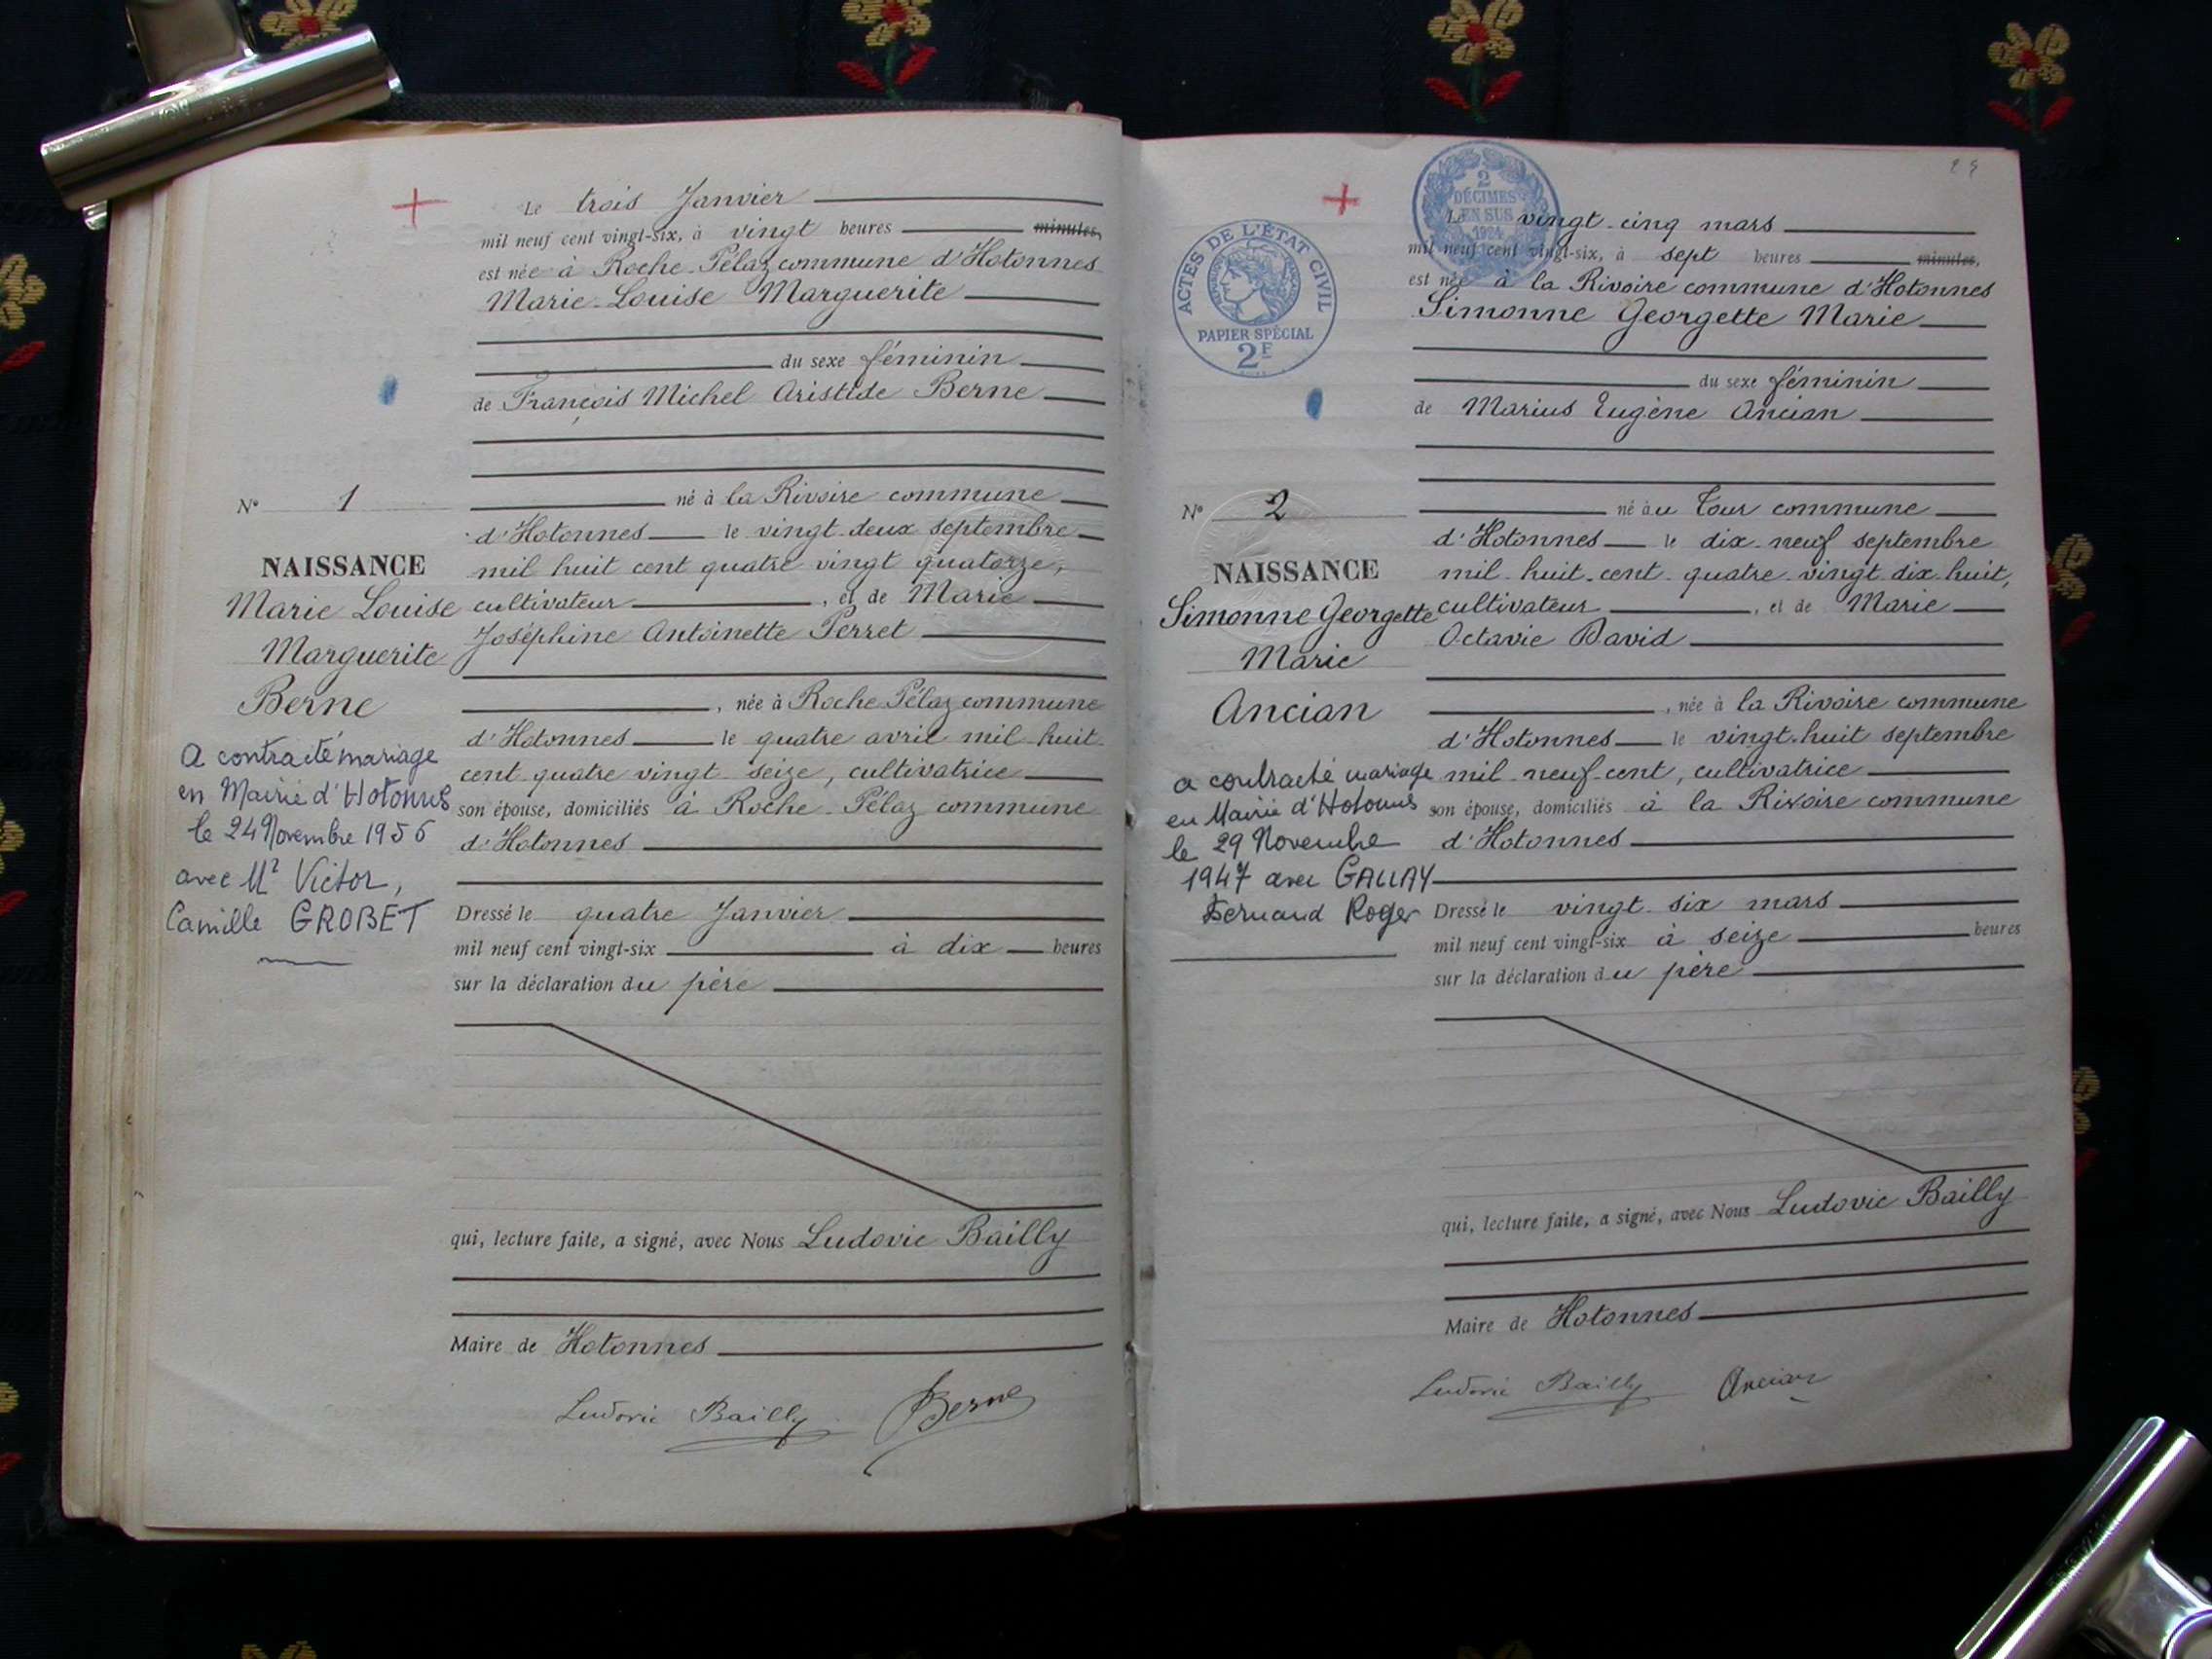 Le trois Janvier
mil neuf cent vingt-six, à vingt heures minutes,
est née à Roche-Pélaz commune d'Hotonnes
Marie-Louise Marguerite
du sexe féminin
de François Michel Aristide Berne
né à la Rivoire commune
d'Hotonnes le vingt-deux septembre
mil huit cent quatre vingt quatorze,
cultivateur, et de Marie
Joséphine Antoinette Perret
, née à Roche Pélaz commune
d'Hotonnes le quatre avril mil-huit-
cent quatre vingt seize, cultivatrice
son épouse, domiciliés à Roche-Pélaz commune
d'Hotonnes
Dressé le quatre Janvier
mil neuf cent vingt-six à dix heures
sur la déclaration du père
qui, lecture faite, a signé, avec Nous Ludovic Bailly
Maire de Hotonnes
Ludovic Bailly Berne
N° 1
NAISSANCE
Marie Louise
Marguerite
Berne
A contracté mariage
en Mairie d'Hotonnes
le 24 Novembre 1956
avec Mr Victor,
Camille GROBET
ACTES DE L'ÉTAT CIVIL
PAPIER SPÉCIAL
2F
2
DÉCIMES
EN SUS
1924
Le vingt-cinq mars
mil neuf cent vingt-six, à sept heures minutes,
est née à la Rivoire commune d'Hotonnes
Simonne Georgette Marie
du sexe féminin
de Marius Eugène Ancian
né au Tour commune
d'Hotonnes le dix-neuf septembre
mil-huit-cent-quatre-vingt-dix-huit,
cultivateur, et de Marie
Octavie David
, née à la Rivoire commune
d'Hotonnes le vingt-huit septembre
mil-neuf-cent, cultivatrice
son épouse, domiciliés à la Rivoire commune
d'Hotonnes
Dressé le vingt-six mars
mil neuf cent vingt-six à seize heures
sur la déclaration du père
qui, lecture faite, a signé, avec Nous Ludovic Bailly
Maire de Hotonnes
Ludovic Bailly Ancian
N° 2
NAISSANCE
Simonne Georgette
Marie
Ancian
a contracté mariage
en Mairie d'Hotonnes
le 29 Novembre
1947 avec GALLAY
Fernand Roger